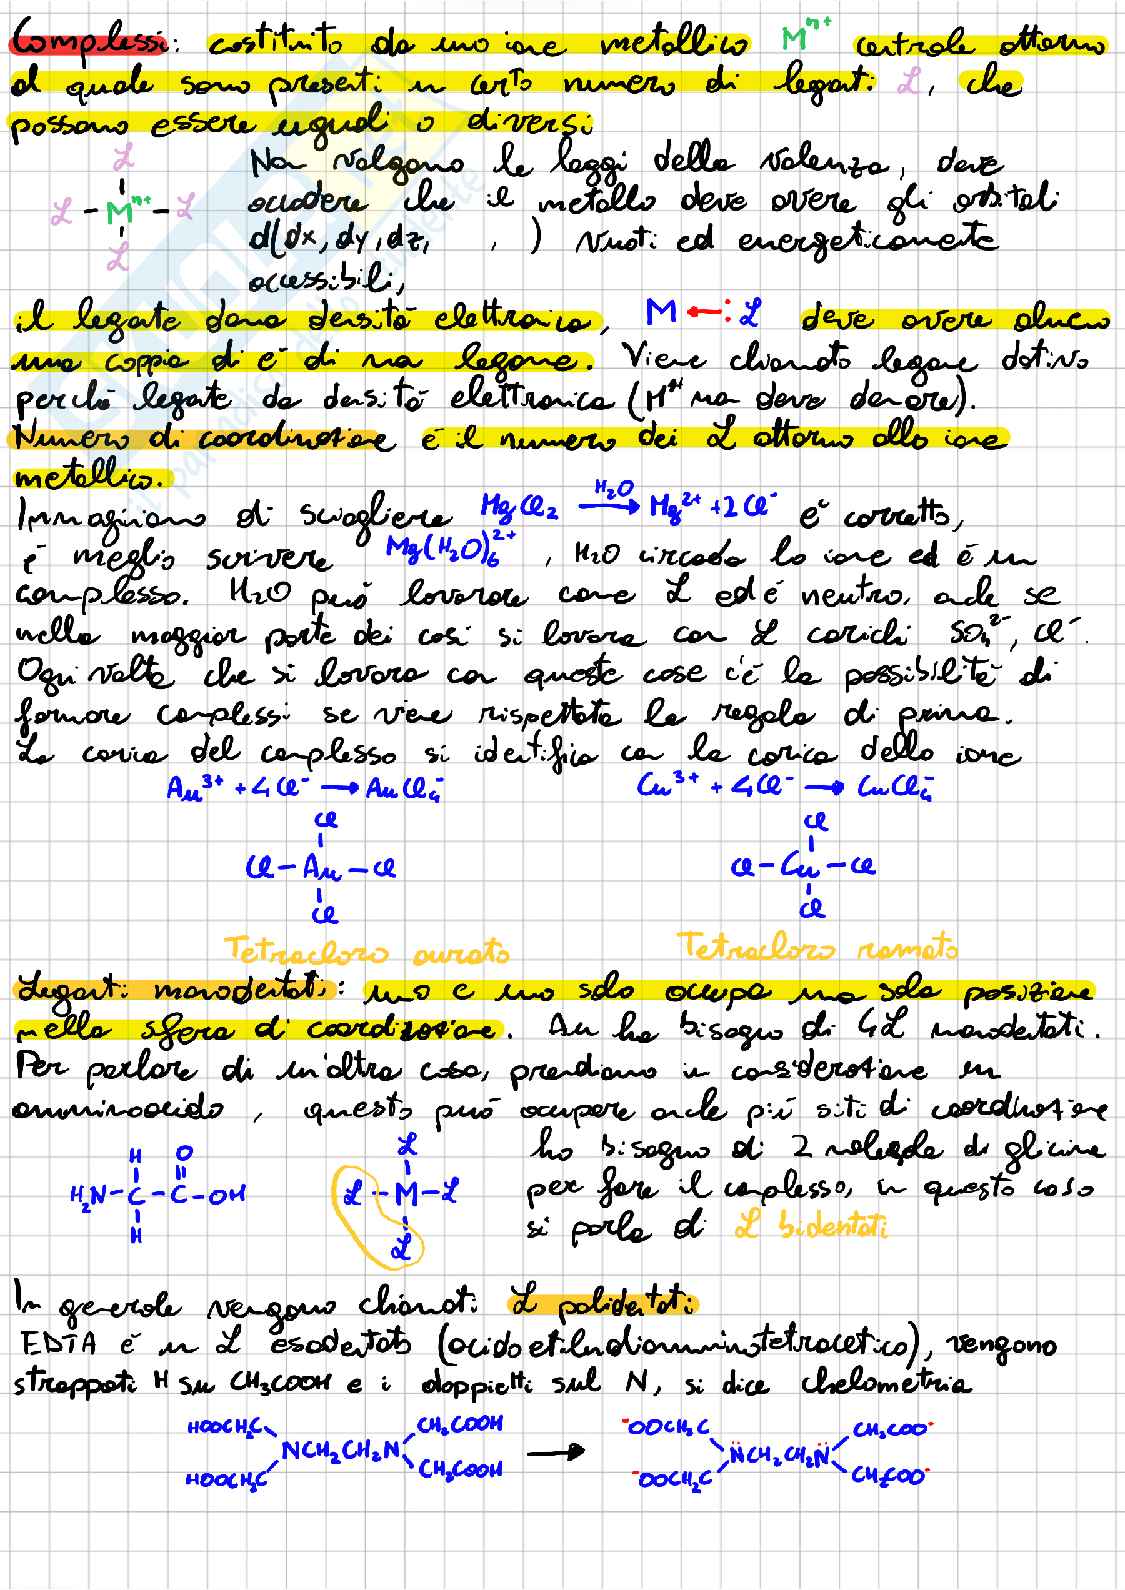 Complessi: costituito da uno ione metallico Mⁿ⁺ centrale attorno
al quale sono presenti un certo numero di legati L, che
possono essere uguali o diversi
L
L - Mⁿ⁺ - L
L
Non valgono le leggi della valenza, deve
accadere che il metallo deve avere gli orbitali
d(dx, dy, dz, , ) vuoti ed energeticamente
accessibili,
il legante dona densità elettronica, M ←: L deve avere almeno
una coppia di e⁻ di non legame. Viene chiamato legame dativo
perché legante da densità elettronica (Mⁿ⁺ non deve donare).
Numero di coordinazione è il numero dei L attorno allo ione
metallico.
Immaginiamo di sciogliere MgCl₂ —H₂O→ Mg²⁺ + 2Cl⁻ è corretto,
è meglio scrivere Mg(H₂O)₆²⁺, H₂O circonda lo ione ed è un
complesso. H₂O può lavorare come L ed è neutro, anche se
nella maggior parte dei casi si lavora con L carichi SO₄²⁻, Cl⁻.
Ogni volta che si lavora con queste cose c'è la possibilità di
formare complessi se viene rispettata la regola di prima.
La carica del complesso si identifica con la carica dello ione
Au³⁺ + 4Cl⁻ → AuCl₄⁻ Cu³⁺ + 4Cl⁻ → CuCl₄⁻
Cl Cl
Cl - Au - Cl Cl - Cu - Cl
Cl Cl
Tetracloro aurato Tetracloro ramato
Leganti monodentati: uno e uno solo occupa una sola posizione
nella sfera di coordinazione. Au ha bisogno di 4L monodentati.
Per parlare di un'altra cosa, prendiamo in considerazione un
amminoacido, questo può occupare anche più siti di coordinazione
H O
H₂N - C - C - OH
H
L
L - M - L
L
ho bisogno di 2 molecole di glicina
per fare il complesso, in questo caso
si parla di L bidentati
In generale vengono chiamati L polidentati
EDTA è un L esadentato (acido etilendiamminotetracetico), vengono
strappati H su CH₃COOH e i doppietti sul N, si dice chelometria
HOOCH₂C CH₂COOH ⁻OOCH₂C CH₂COO⁻
NCH₂CH₂N → N̈CH₂CH₂N̈
HOOCH₂C CH₂COOH ⁻OOCH₂C CH₂COO⁻